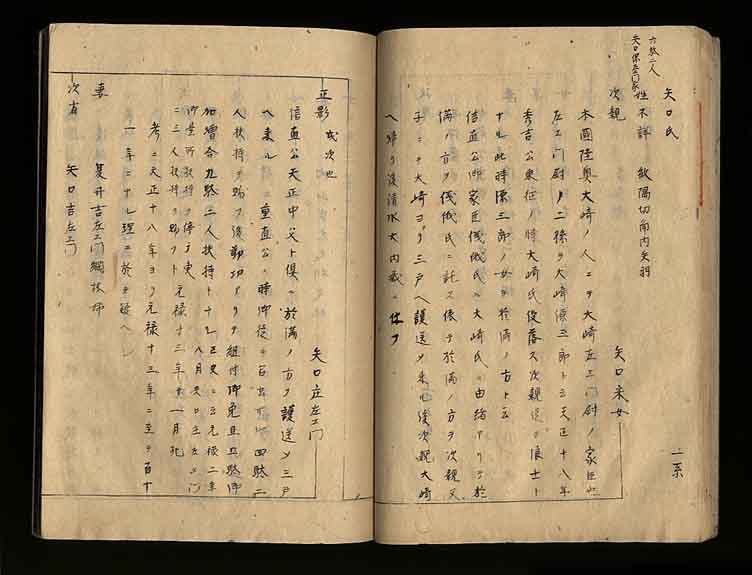 六駄二人
矢口保左エ門家
矢口氏
一系
姓不詳 敷隅切角内矢羽
次親 矢口釆女
本國陸奥大崎ノ人ニヲ大崎左エ門尉ノ家臣也
左エ門尉ノ二孫ヲ大崎源三郎ト云天正十八年
秀吉公東征ノ時大崎氏没落ス次親退テ浪士ト
ナル此時源三郎ノ女ヲ於満ノ方ト云
信直公御家臣儀俄氏ハ大崎氏ニ由緒アリテ於
満ノ方ヲ儀俄氏ニ託ス依テ於満ノ方ヲ次親父
子ニテ大崎ヨリ三戸ヘ護送メ来ル後次親大崎
ヘ帰リ後清水大内蔵ニ仕フ
正影 或次也 矢口庄左エ門
信直公天正中父ト倶ニ於満ノ方ヲ護送メ三戸
ヘ来ル 重直公ノ時御徒ニ召出 四駄二
人扶持ヲ賜フ後勤功アリテ組付御免且五駄御
加増合九駄二人扶持トナル 史ニ云元禄二年
八月矢口庄左エ門
御量所敷持ヲ停テ更
ニ三人扶持ヲ賜フト 元禄十三年十一月死
考ニ天正十八年ヨリ元禄十三年ニ至テ百十
一年ニナル理ニ於テ疑ヘシ
妻 夏井吉左エ門綱林姉
次省 矢口吉左エ門